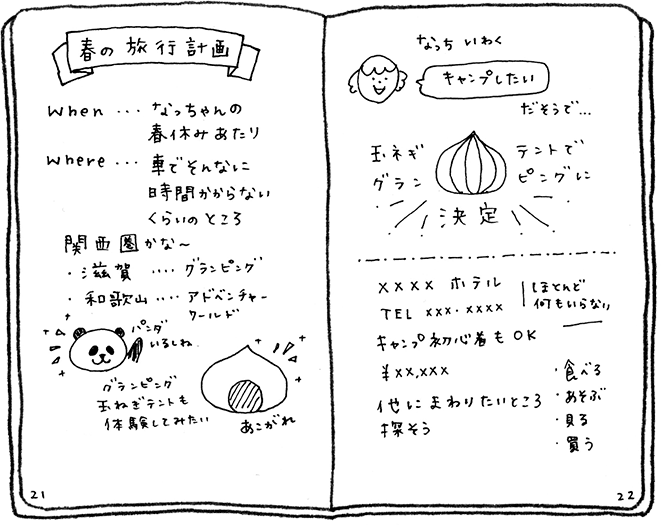 春の旅行計画
when … なっちゃんの
春休みあたり
where … 車でそんなに
時間かからない
くらいのところ
関西圏かな〜
・滋賀 …. グランピング
・和歌山 …. アドベンチャー
ワールド
パンダ
いるしね
グランピング
玉ねぎテントも
体験してみたい
あこがれ
21
なっち いわく
キャンプしたい
だそうで…
玉ネギ テントで
グラン ピングに
決定
xxxx ホテル
TEL xxx・xxxx
ほとんど
何もいらない
キャンプ初心者もOK
¥xx,xxx
他にまわりたいところ
探そう
・食べる
・あそぶ
・見る
・買う
22